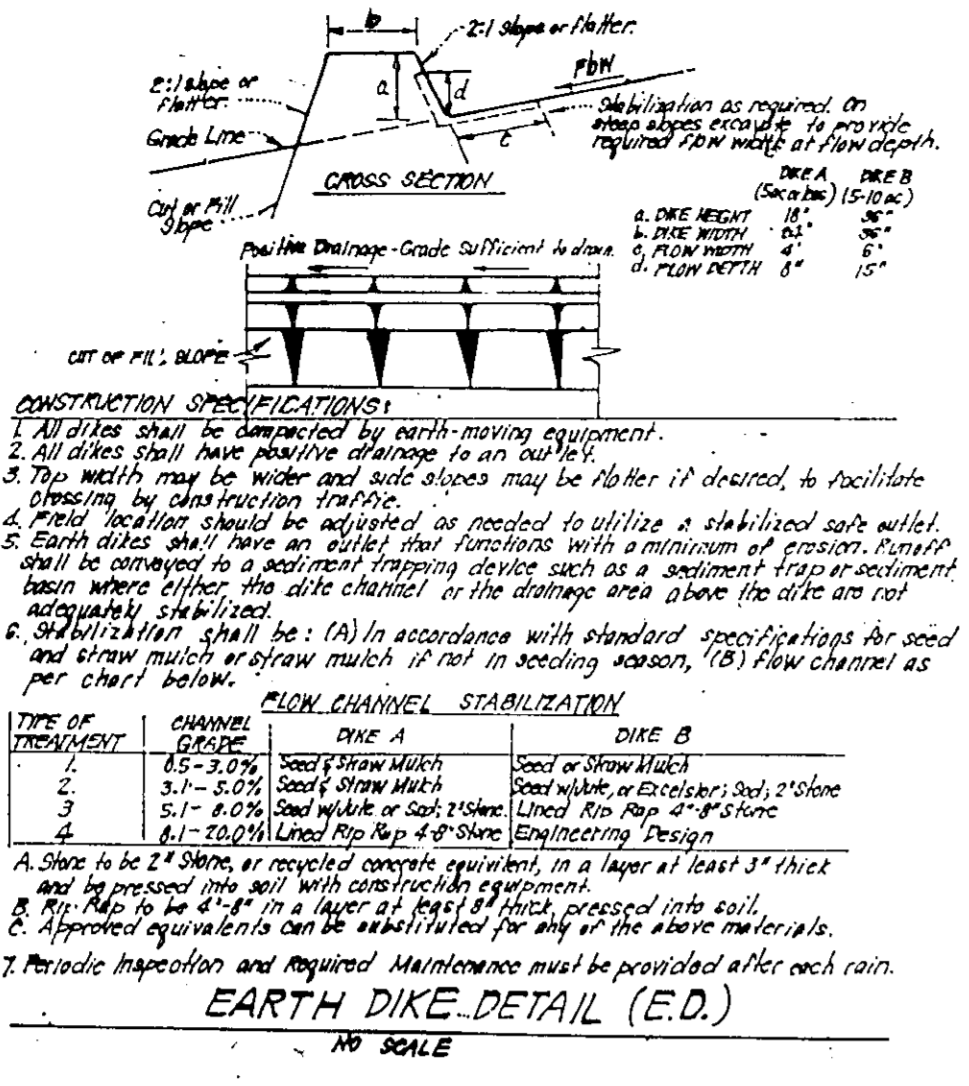 b
2:1 Slope or flatter.
Flow
2:1 slope or
flatter.
a
d
c
Stabilization as required. On
steep slopes excavate to provide
required flow width at flow depth.
Grade Line
CROSS SECTION
Cut or Fill
Slope
DIKE A DIKE B
(5ac or less) (5-10 ac)
a. DIKE HEIGHT 18" 36"
b. DIKE WIDTH 36"
c. FLOW WIDTH 4' 6'
d. FLOW DEPTH 8" 15"
Positive Drainage-Grade Sufficient to drain.
CUT OF FILL SLOPE
CONSTRUCTION SPECIFICATIONS:
1. All dikes shall be compacted by earth-moving equipment.
2. All dikes shall have positive drainage to an outlet.
3. Top width may be wider and side slopes may be flatter if desired, to facilitate
crossing by construction traffic.
4. Field location should be adjusted as needed to utilize a stabilized safe outlet.
5. Earth dikes shall have an outlet that functions with a minimum of erosion. Runoff
shall be conveyed to a sediment trapping device such as a sediment trap or sediment
basin where either the dike channel or the drainage area above the dike are not
adequately stabilized.
6. Stabilization shall be: (A) In accordance with standard specifications for seed
and straw mulch or straw mulch if not in seeding season, (B) flow channel as
per chart below.
FLOW CHANNEL STABILIZATION
TYPE OF TREATMENT CHANNEL GRADE DIKE A DIKE B
1. 0.5-3.0% Seed & Straw Mulch Seed or Straw Mulch
2. 3.1-5.0% Seed & Straw Mulch Seed w/Jute, or Excelsior; Sod; 2" Stone
3 5.1-8.0% Seed w/Jute or Sod; 2" Stone Lined Rip Rap 4"-8" Stone
4 8.1-20.0% Lined Rip Rap 4-8" Stone Engineering Design
A. Stone to be 2" Stone, or recycled concrete equivilent, in a layer at least 3" thick
and be pressed into soil with construction equipment.
B. Rip-Rap to be 4"-8" in a layer at least 8" thick pressed into soil.
C. Approved equivalents can be substituted for any of the above materials.
7. Periodic Inspection and Required Maintenance must be provided after each rain.
EARTH DIKE DETAIL (E.D.)
NO SCALE